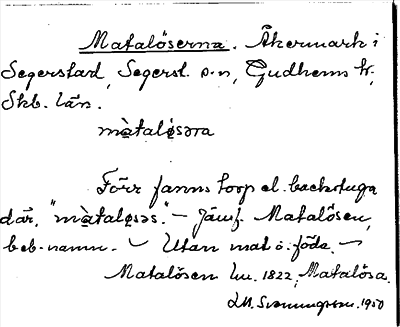 Matalöserna. Åkermark i
Segerstad, Segerst. s:n, Gudhems hd,
Skb. län.
màtaḷø̀səra
Förr fanns torp el. backstuga
där, "màtaḷøsəs." – Jämf. Matalösen,
beb.-namn. – Utan mat o. föda. –
Matalösen hm. 1822, Matalösa.
1950